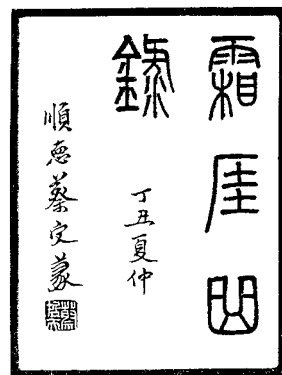 霜厓曲
錄
丁丑夏仲
順惪蔡守篆